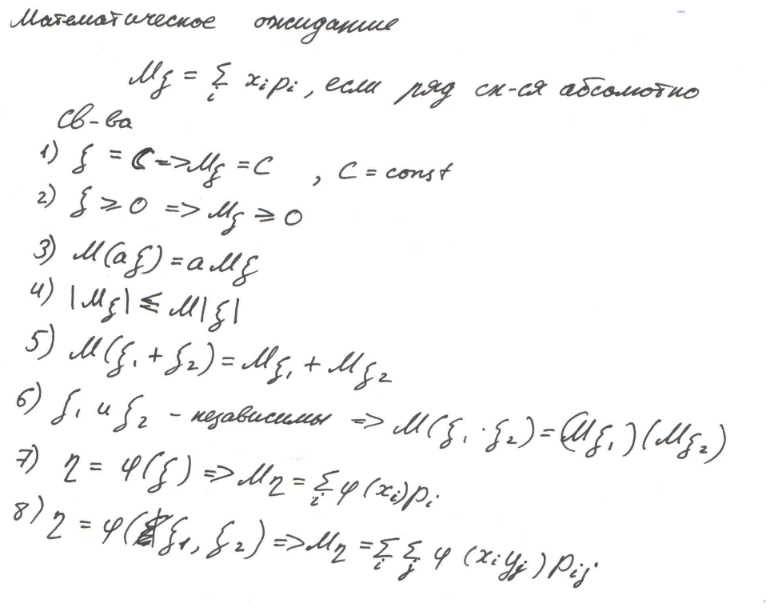 Математическое ожидание
Mξ = Σ_i x_i p_i, если ряд сх-ся абсолютно
Св-ва
1) ξ = C => Mξ = C , C = const
2) ξ ≥ 0 => Mξ ≥ 0
3) M(aξ) = aMξ
4) |Mξ| ≤ M|ξ|
5) M(ξ₁ + ξ₂) = Mξ₁ + Mξ₂
6) ξ₁ и ξ₂ - независимы => M(ξ₁ · ξ₂) = (Mξ₁)(Mξ₂)
7) η = φ(ξ) => Mη = Σ_i φ(x_i)p_i
8) η = φ(ξ₁, ξ₂) => Mη = Σ_i Σ_j φ(x_i y_j) p_ij